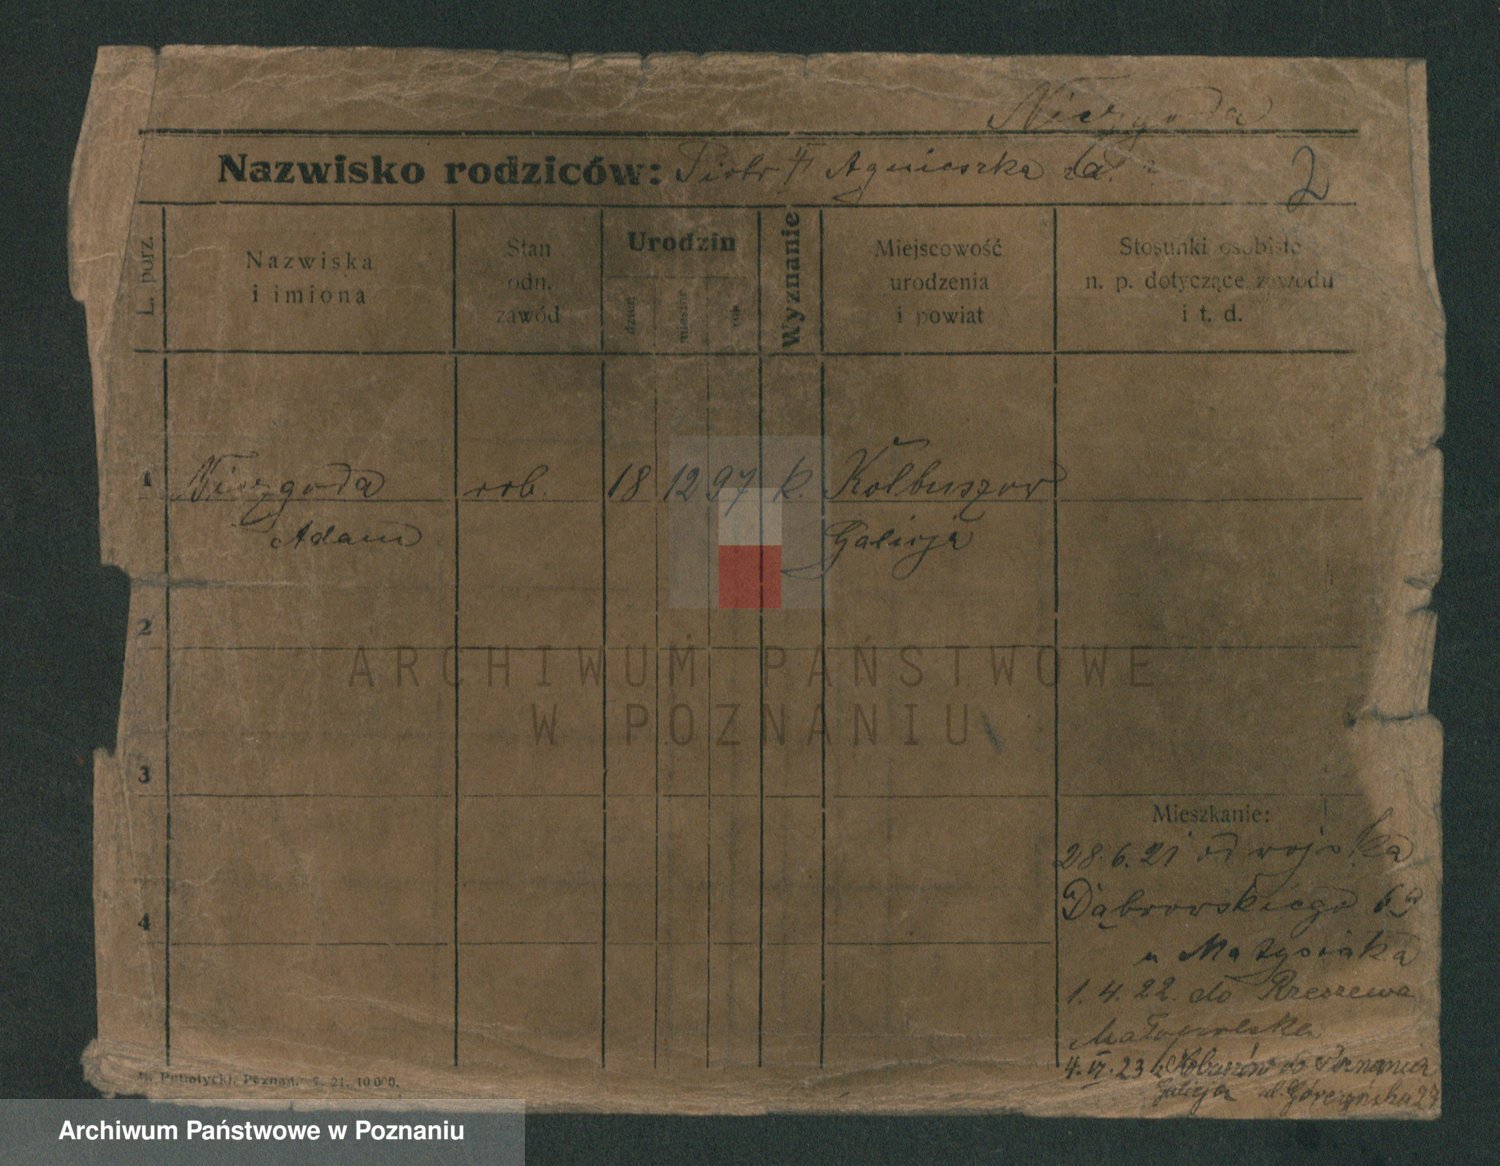 Niezgoda
Nazwisko rodziców: Piotr Agnieszka
2
L. porz.
Nazwiska
i imiona
Stan
odn.
zawód
Urodzin
dzień
miesiąc
rok
Wyznanie
Miejscowość
urodzenia
i powiat
Stosunki osobiste
n. p. dotyczące zawodu
i t. d.
1 Niezgoda rob. 18 12 97 k. Kolbuszow
Adam Galicja
2
3
4
Mieszkanie:
28.6.21 od wojska
Dąbrowskiego 69
u Matysiaka
1.4.22. do Rzeszewa
Małopolska
4. VI. 23 z Kobuszów do Poznania
Galicja Górczyńska 27
Poznań. 21. 10000.
ARCHIWUM PAŃSTWOWE
W POZNANIU
Archiwum Państwowe w Poznaniu